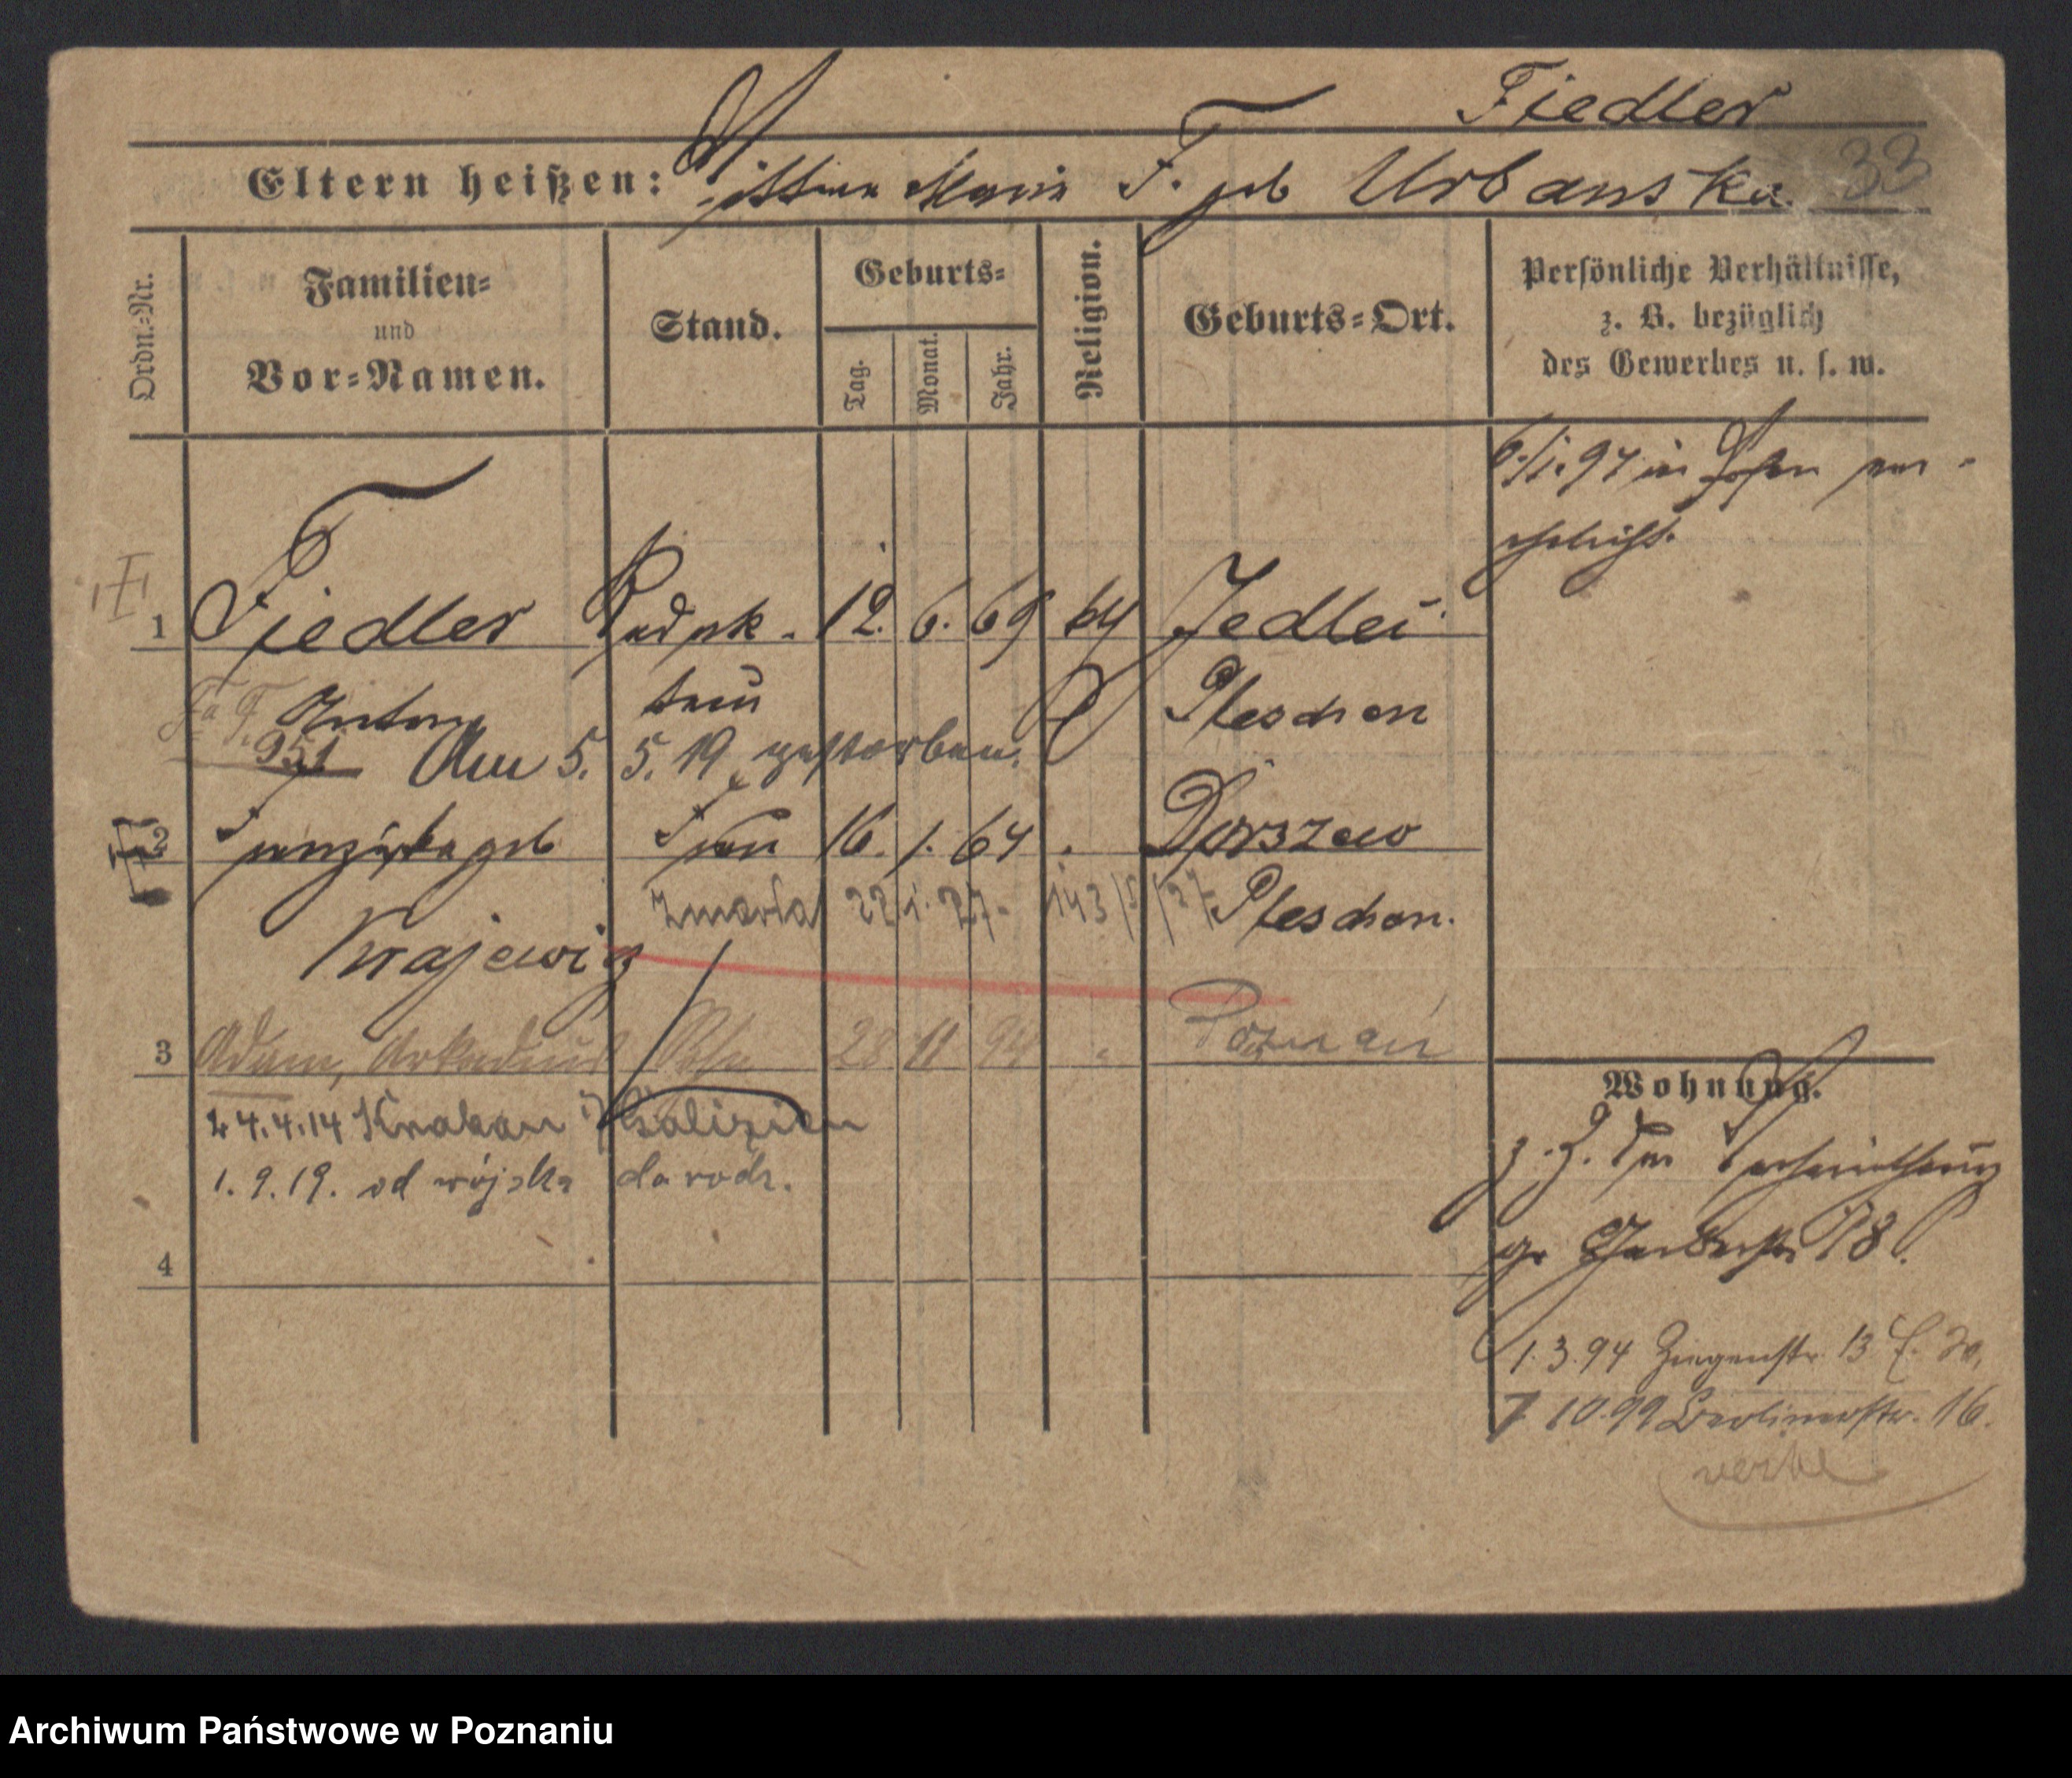 Fiedler
Eltern heißen: Wittwe Marie F. geb Urbanska. 33
Ordn.-Nr.
Familien-
und
Vor-Namen.
Stand.
Geburts-
Tag.
Monat.
Jahr.
Religion.
Geburts-Ort.
Persönliche Verhältnisse,
z. B. bezüglich
des Gewerbes u. s. w.
6./1.94 in Posen ver-
ehelicht.
1 Fiedler Redak- 12. 6. 69 kth Jedlec
Antony teur Pleschen
951 Am 5. 5. 19 gestorben.
2 Franziska geb Frau 16. 1. 64 Dorszewo
Zmarła 22. 1. 27. 143/5/27 Pleschen.
Krajewicz
3 Adam, Arkadius 28 11 94 Poznań
24.4.14 Krakau i/Galizien
1.9.19. od wojska do rodz.
4
Wohnung.
z. Z. der Verheirathung
gr Gerberstr 18.
1.3.94 Ziegenstr. 13
7.10.99 Berlinerstr. 16.
Archiwum Państwowe w Poznaniu